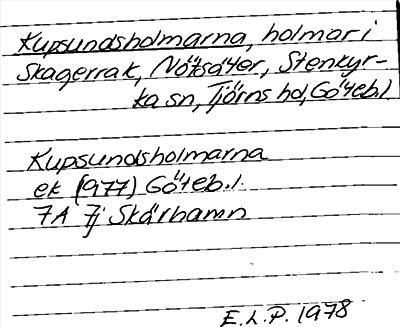 Kupsundsholmarna, holmar i
Skagerrak, Nötsäter, Stenkyr-
ka sn, Tjörns hd, Göteb. l.
Kupsundsholmarna
ek (977) Göteb. l.
7A 7j Skärhamn
E.L.P. 1978